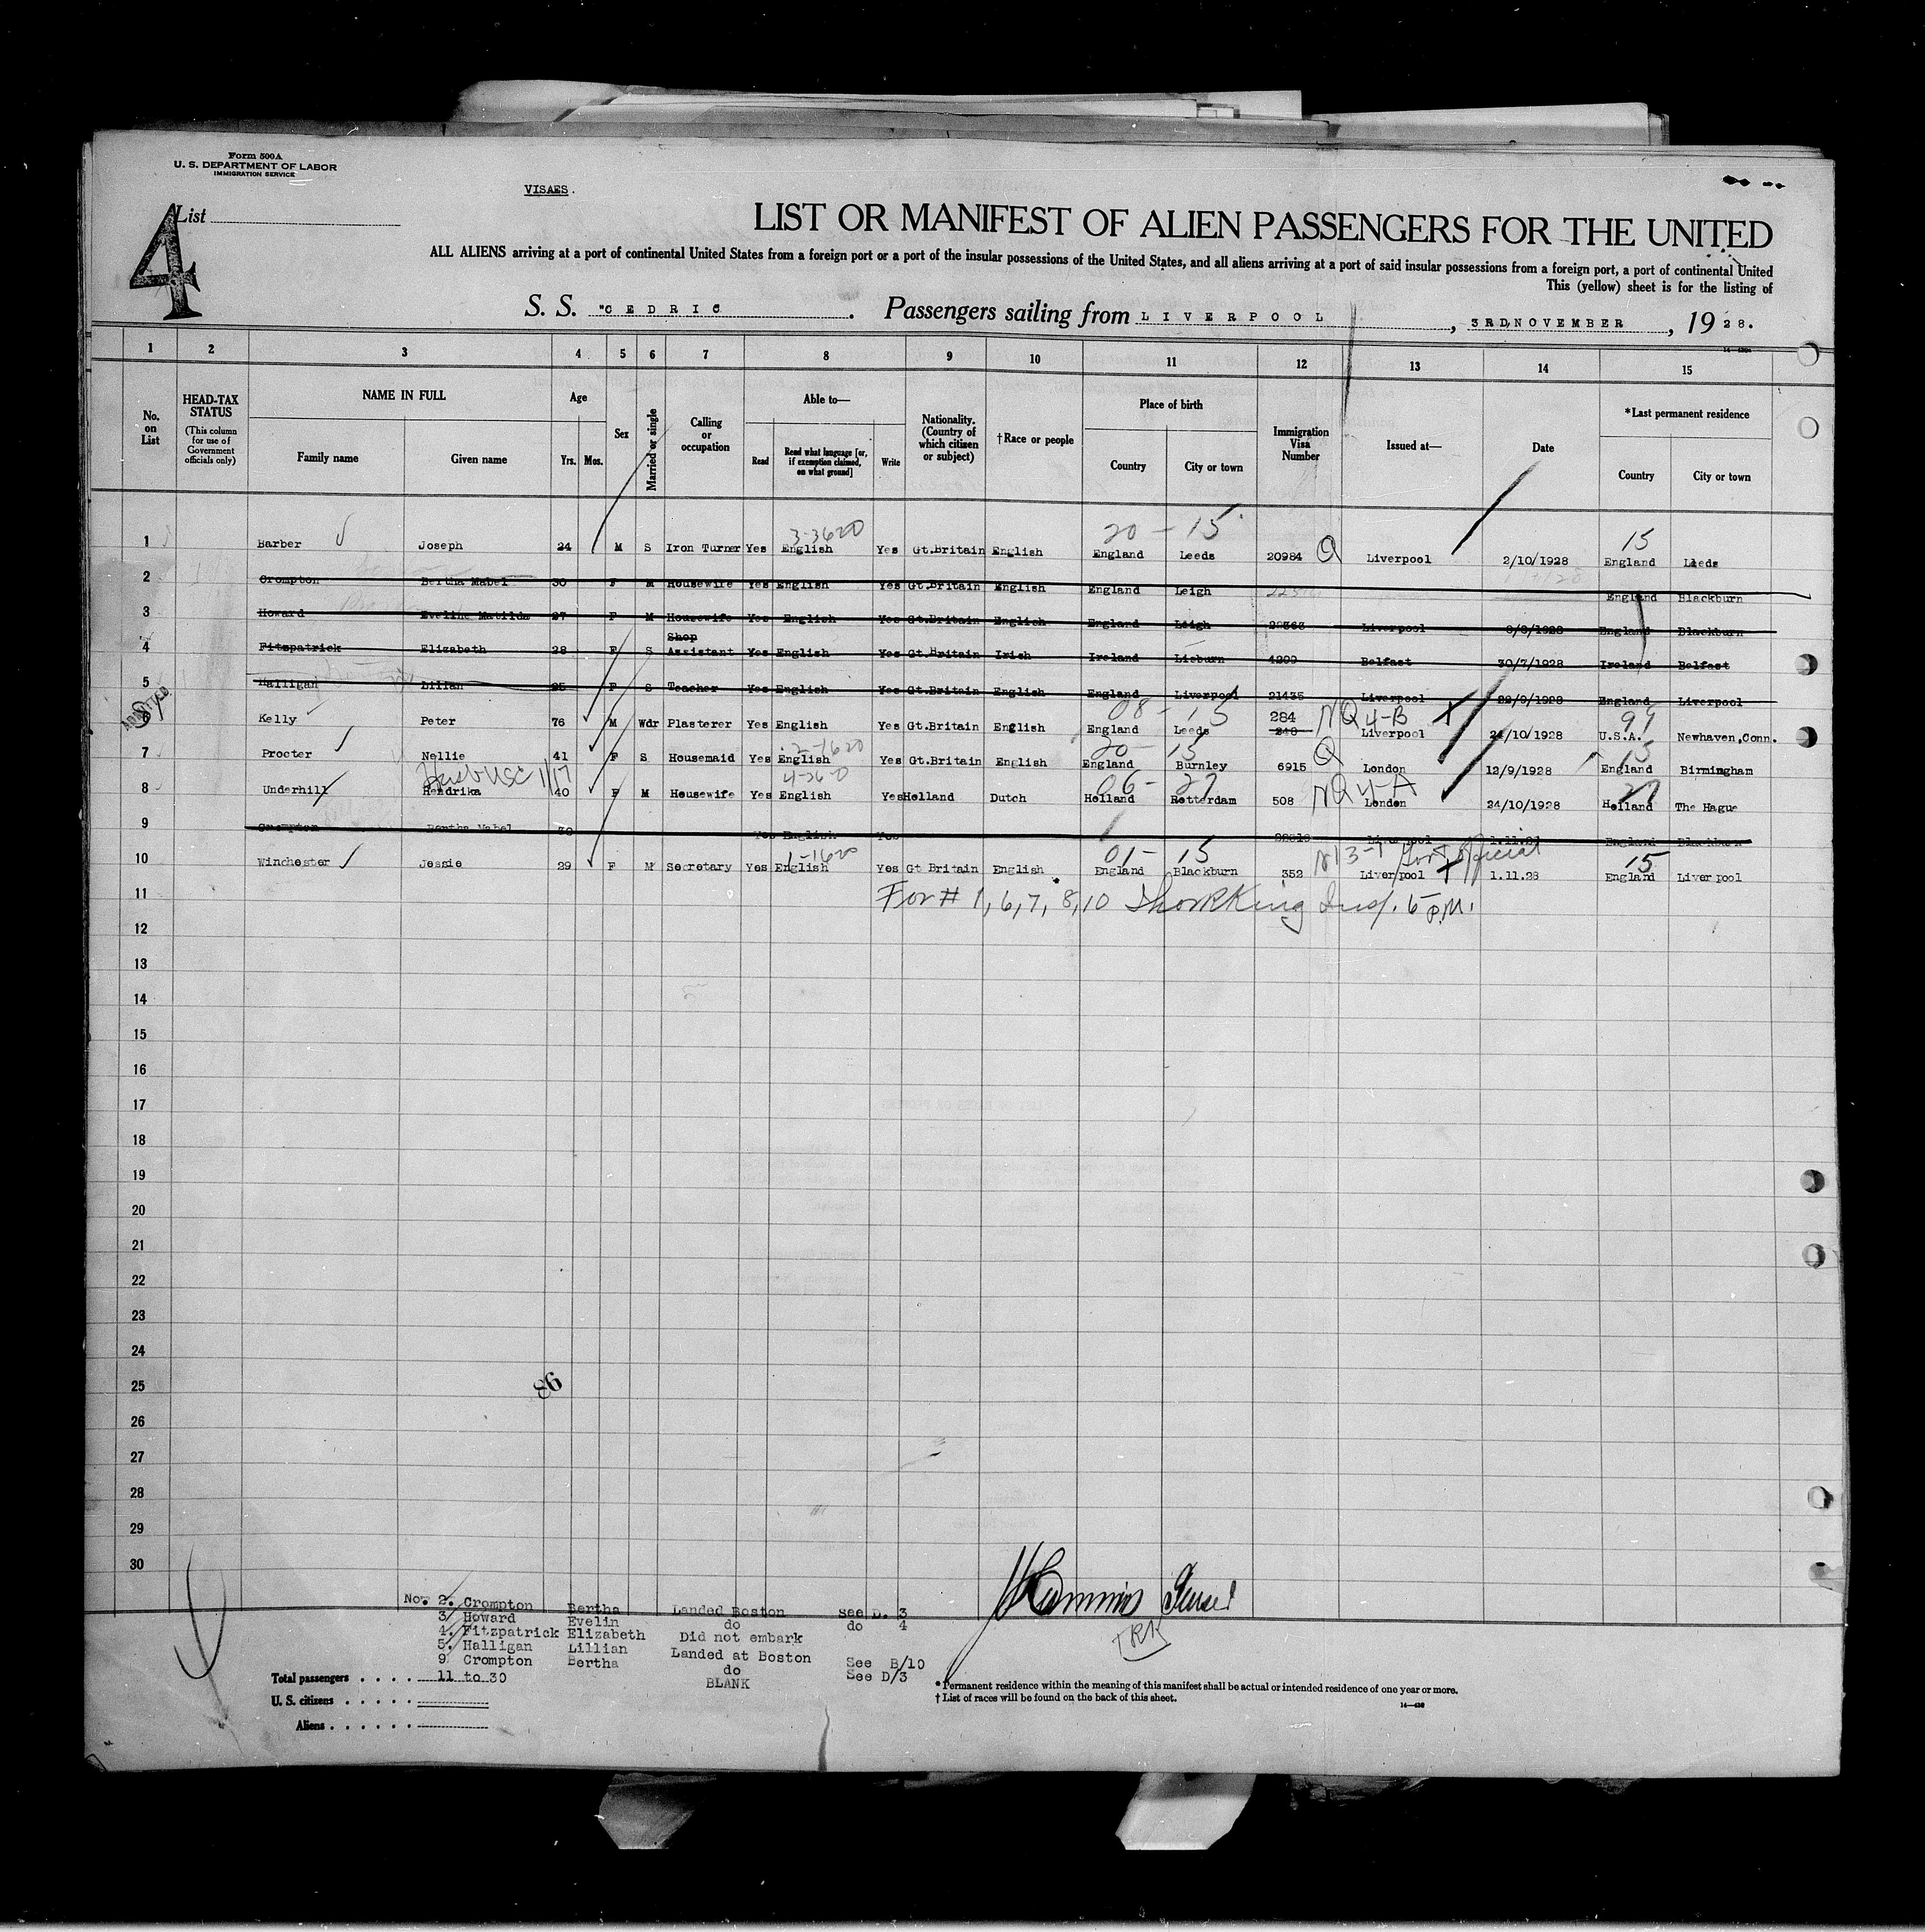 Form 500A
U. S. DEPARTMENT OF LABOR
IMMIGRATION SERVICE
VISAES.
4
List
LIST OR MANIFEST OF ALIEN PASSENGERS FOR THE UNITED
ALL ALIENS arriving at a port of continental United States from a foreign port or a port of the insular possessions of the United States, and all aliens arriving at a port of said insular possessions from a foreign port, a port of continental United
This (yellow) sheet is for the listing of
S. S. "CEDRIC . Passengers sailing from LIVERPOOL , 3RD, NOVEMBER , 1928.
1 2 3 4 5 6 7 8 9 10 11 12 13 14 15
No. on List
HEAD-TAX STATUS (This column for use of Government officials only)
NAME IN FULL
Family name Given name
Age
Yrs. Mos.
Sex
Married or single
Calling or occupation
Able to—
Read Read what language [or, if exemption claimed, on what ground] Write
Nationality. (Country of which citizen or subject)
†Race or people
Place of birth
Country City or town
Immigration Visa Number
Issued at—
Date
*Last permanent residence
Country City or town
3-3620 20 - 15 15
1 Barber Joseph 24 M S Iron Turner Yes English Yes Gt.Britain English England Leeds 20984 Q Liverpool 2/10/1928 England Leeds
2 Crompton Bertha Mabel 30 F M Housewife Yes English Yes Gt.Britain English England Leigh England Blackburn
3 Howard Eveline Matilda 27 F M Housewife Yes English Yes Gt.Britain English England Leigh Liverpool England Blackburn
4 Fitzpatrick Elizabeth 28 F S Shop Assistant Yes English Yes Gt.Britain Irish Ireland Lisburn 4209 Belfast 30/7/1928 Ireland Belfast
5 Halligan Lilian 25 F S Teacher Yes English Yes Gt.Britain English England Liverpool 21435 Liverpool England Liverpool
ADMITTED
08 - 15 99
6 Kelly Peter 76 M Wdr Plasterer Yes English Yes Gt.Britain English England Leeds 284 NQ 4-B Liverpool 24/10/1928 U.S.A. Newhaven,Conn.
2-1620 20 - 15 15
7 Procter Nellie 41 F S Housemaid Yes English Yes Gt.Britain English England Burnley 6915 Q London 12/9/1928 England Birmingham
Husb USC 1/17 4-2600 06 - 27 27
8 Underhill Hendrika 40 F M Housewife Yes English Yes Holland Dutch Holland Rotterdam 508 NQ 4-A London 24/10/1928 Holland The Hague
9 Crompton Bertha Mabel 30 Yes English Yes Liverpool England Blackburn
1-1620 01 - 15 N 3-1 Govt Official 15
10 Winchester Jessie 29 F M Secretary Yes English Yes Gt Britain English England Blackburn 352 Liverpool 1.11.28 England Liverpool
11 For # 1, 6, 7, 8, 10 Insp. 6 P.M.
12
13
14
15
16
17
18
19
20
21
22
23
24
25
86
26
27
28
29
30
No. 2. Crompton Bertha Landed Boston See D. 3
3/ Howard Evelin do do 4
4. Fitzpatrick Elizabeth Did not embark
5. Halligan Lillian Landed at Boston See B/10
9 Crompton Bertha do See D/3
11 to 30 BLANK
Total passengers
U. S. citizens
Aliens
*Permanent residence within the meaning of this manifest shall be actual or intended residence of one year or more.
†List of races will be found on the back of this sheet.